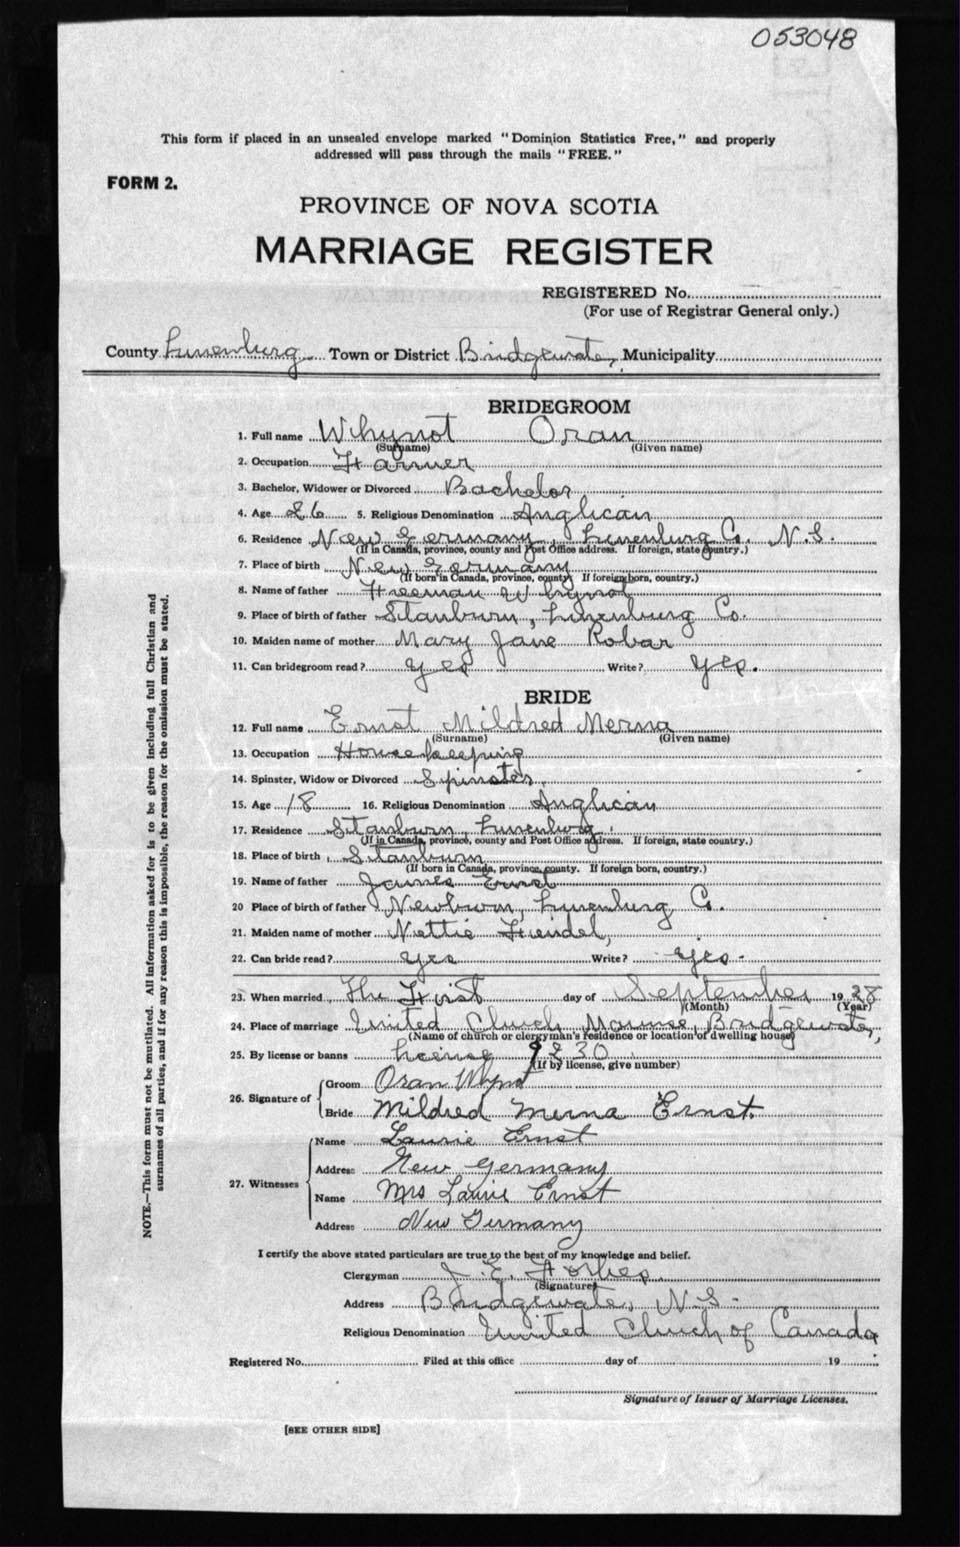 053048
This form if placed in an unsealed envelope marked "Dominion Statistics Free," and properly
addressed will pass through the mails "FREE."
FORM 2.
PROVINCE OF NOVA SCOTIA
MARRIAGE REGISTER
REGISTERED No.
(For use of Registrar General only.)
County Lunenburg Town or District Bridgewater, Municipality
BRIDEGROOM
1. Full name Whynot Oran
(Surname) (Given name)
2. Occupation Farmer
3. Bachelor, Widower or Divorced Bachelor
4. Age 26 5. Religious Denomination Anglican
6. Residence New Germany, Lunenburg Co. N.S.
(If in Canada, province, county and Post Office address. If foreign, state country.)
7. Place of birth New Germany
(If born in Canada, province, county. If foreign born, country.)
8. Name of father Freeman Whynot
9. Place of birth of father Stanburn, Lunenburg Co.
10. Maiden name of mother Mary Jane Robar
11. Can bridegroom read? yes Write? yes.
BRIDE
12. Full name Ernst Mildred Merna
(Surname) (Given name)
13. Occupation Housekeeping
14. Spinster, Widow or Divorced Spinster
15. Age 18 16. Religious Denomination Anglican
17. Residence Stanburn, Lunenburg
(If in Canada, province, county and Post Office address. If foreign, state country.)
18. Place of birth Stanburn
(If born in Canada, province, county. If foreign born, country.)
19. Name of father James Ernst
20 Place of birth of father Newburn, Lunenburg Co.
21. Maiden name of mother Nettie
22. Can bride read? yes Write? yes.
23. When married The First day of September 1928
(Month) (Year)
24. Place of marriage United Church Manse, Bridgewater,
(Name of church or clergyman's residence or location of dwelling house)
25. By license or banns License 9230
(If by license, give number)
26. Signature of
Groom Oran Whynot
Bride Mildred Merna Ernst.
27. Witnesses
Name Laurie Ernst
Address New Germany
Name Mrs Laurie Ernst
Address New Germany
I certify the above stated particulars are true to the best of my knowledge and belief.
Clergyman J. E. Forbes
(Signature)
Address Bridgewater, N.S.
Religious Denomination United Church of Canada
Registered No. Filed at this office day of 19
Signature of Issuer of Marriage Licenses.
[SEE OTHER SIDE]
NOTE.—This form must not be mutilated. All information asked for is to be given including full Christian and
surnames of all parties, and if for any reason this is impossible, the reason for the omission must be stated.